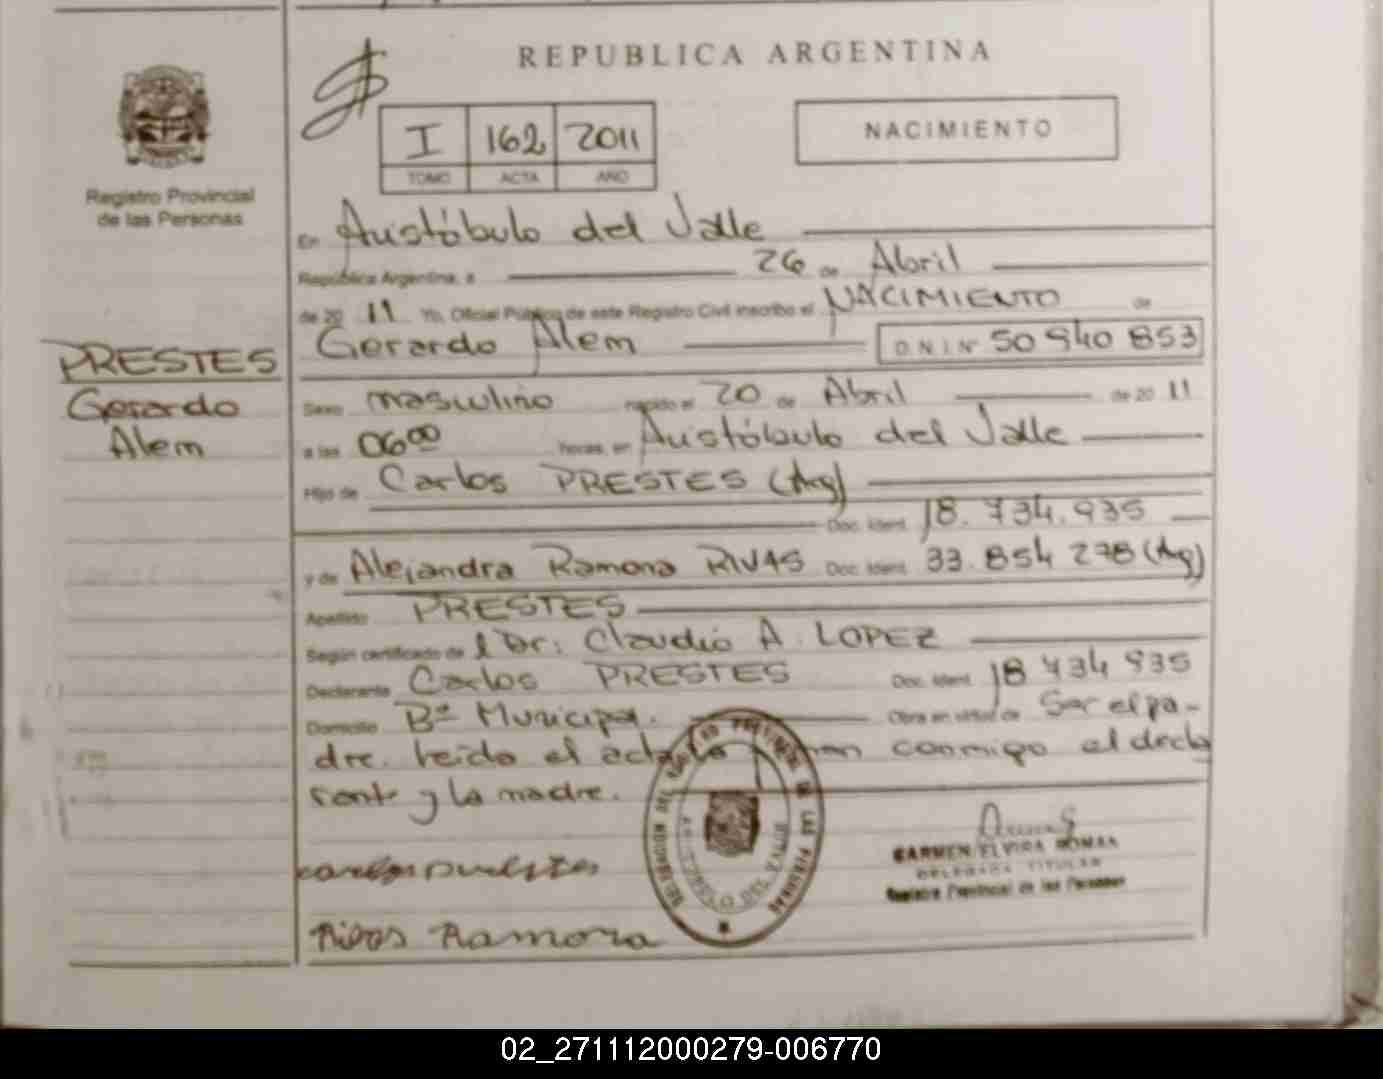 REPUBLICA ARGENTINA
I 162 2011
TOMO ACTA AÑO
NACIMIENTO
Registro Provincial
de las Personas
PRESTES
Gerardo
Alem
En Aristóbulo del Valle
República Argentina, a 26 de Abril
de 20 11 Yo, Oficial Público de este Registro Civil inscribo el NACIMIENTO de
Gerardo Alem D.N.I. Nº 50 940 853
Sexo masculino nacido el 20 de Abril de 20 11
a las 06 00 horas, en Aristóbulo del Valle
Hijo de Carlos PRESTES (Arg)
Doc. Ident. 18.734.935
y de Alejandra Ramona RIVAS Doc. Ident. 33.854 278 (Arg)
Apellido PRESTES
Según certificado de l Dr: Claudio A. LOPEZ
Declarante Carlos PRESTES Doc. Ident. 18 734 935
Domicilio Bº Municipal. Obra en virtud de Ser el pa-
dre. Leida el acta conmigo el decla
rante y la madre.
CARMEN ELVIRA ROMAN
DELEGADA TITULAR
Registro Provincial de las Personas
Ribas Ramona
02_271112000279-006770